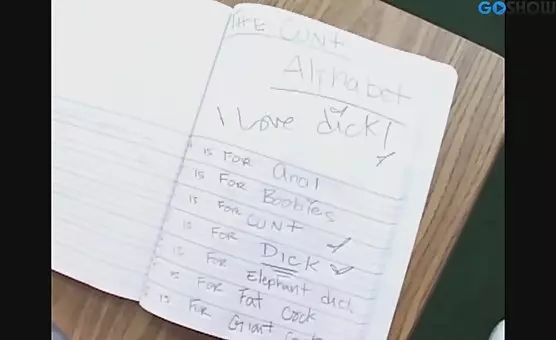 GOSHOW
THE CUNT
Alphabet
I Love dick!
is FOR anal
is FOR Boobies
is FOR CUNT
is FOR DICK
is FOR Elephant dick
is FOR Fat Cock
is FOR Giant